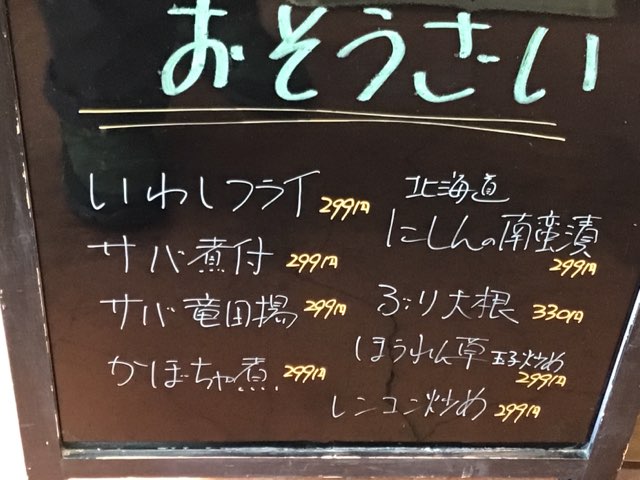 おそうざい
いわしフライ 299円
サバ煮付 299円
サバ竜田揚 299円
かぼちゃ煮 299円
北海道
にしんの南蛮漬
299円
ぶり大根 330円
ほうれん草玉子炒め
299円
レンコン炒め 299円